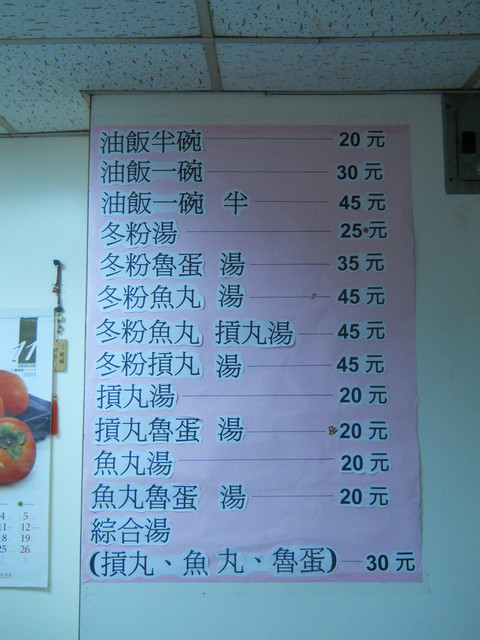 油飯半碗 20元
油飯一碗 30元
油飯一碗 半 45元
冬粉湯 25元
冬粉魯蛋 湯 35元
冬粉魚丸 湯 45元
冬粉魚丸 摃丸湯 45元
冬粉摃丸 湯 45元
摃丸湯 20元
摃丸魯蛋 湯 20元
魚丸湯 20元
魚丸魯蛋 湯 20元
綜合湯
(摃丸、魚 丸、魯蛋) 30元
11
2011
4 5
11 12
18 19
25 26